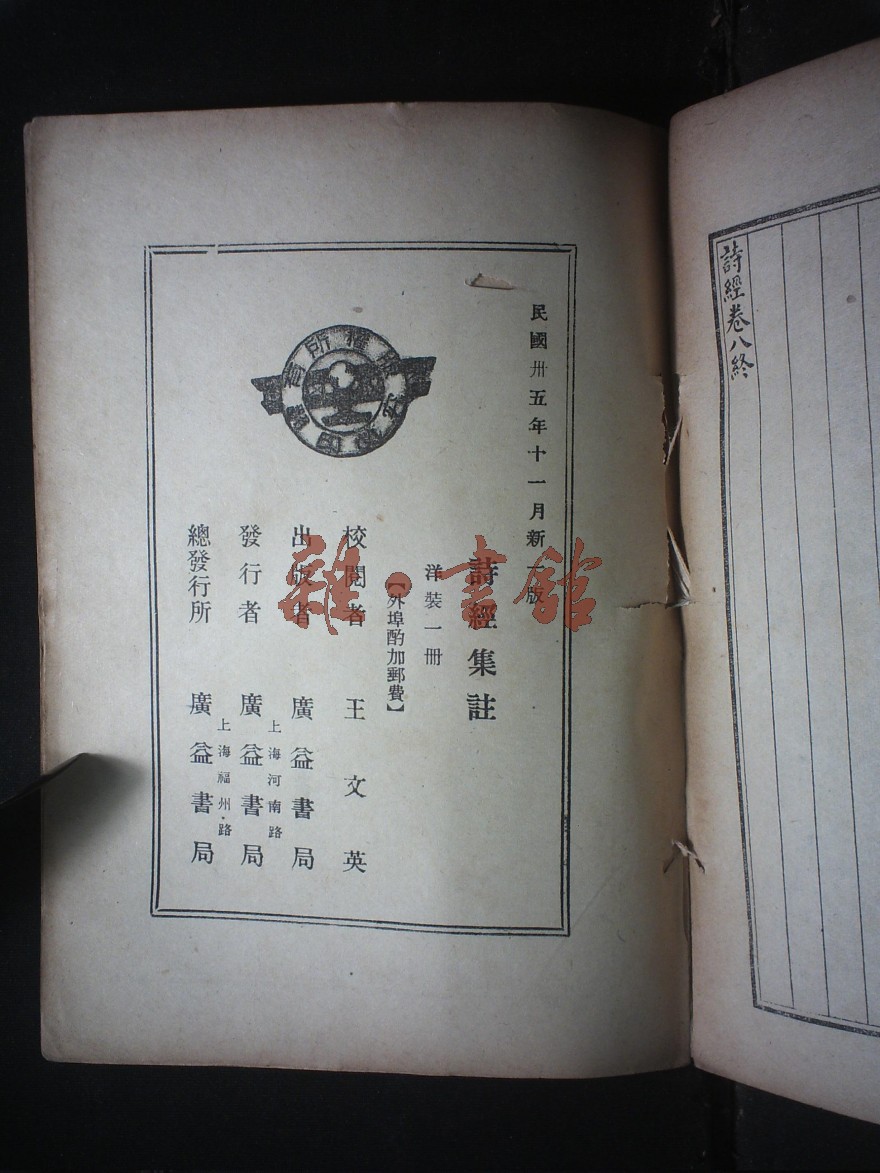 詩經卷八終
民國卅五年十一月新一版
詩經集註
洋裝一冊
【外埠酌加郵費】
校閱者 王文英
出版者 廣益書局
上海河南路
發行者 廣益書局
上海福州路
總發行所 廣益書局
雜·書館